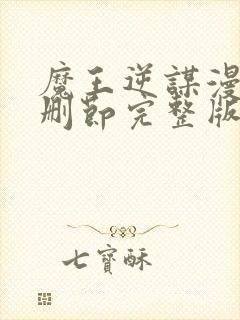 魔王逆謀漫
刪節完整版
七寶酥